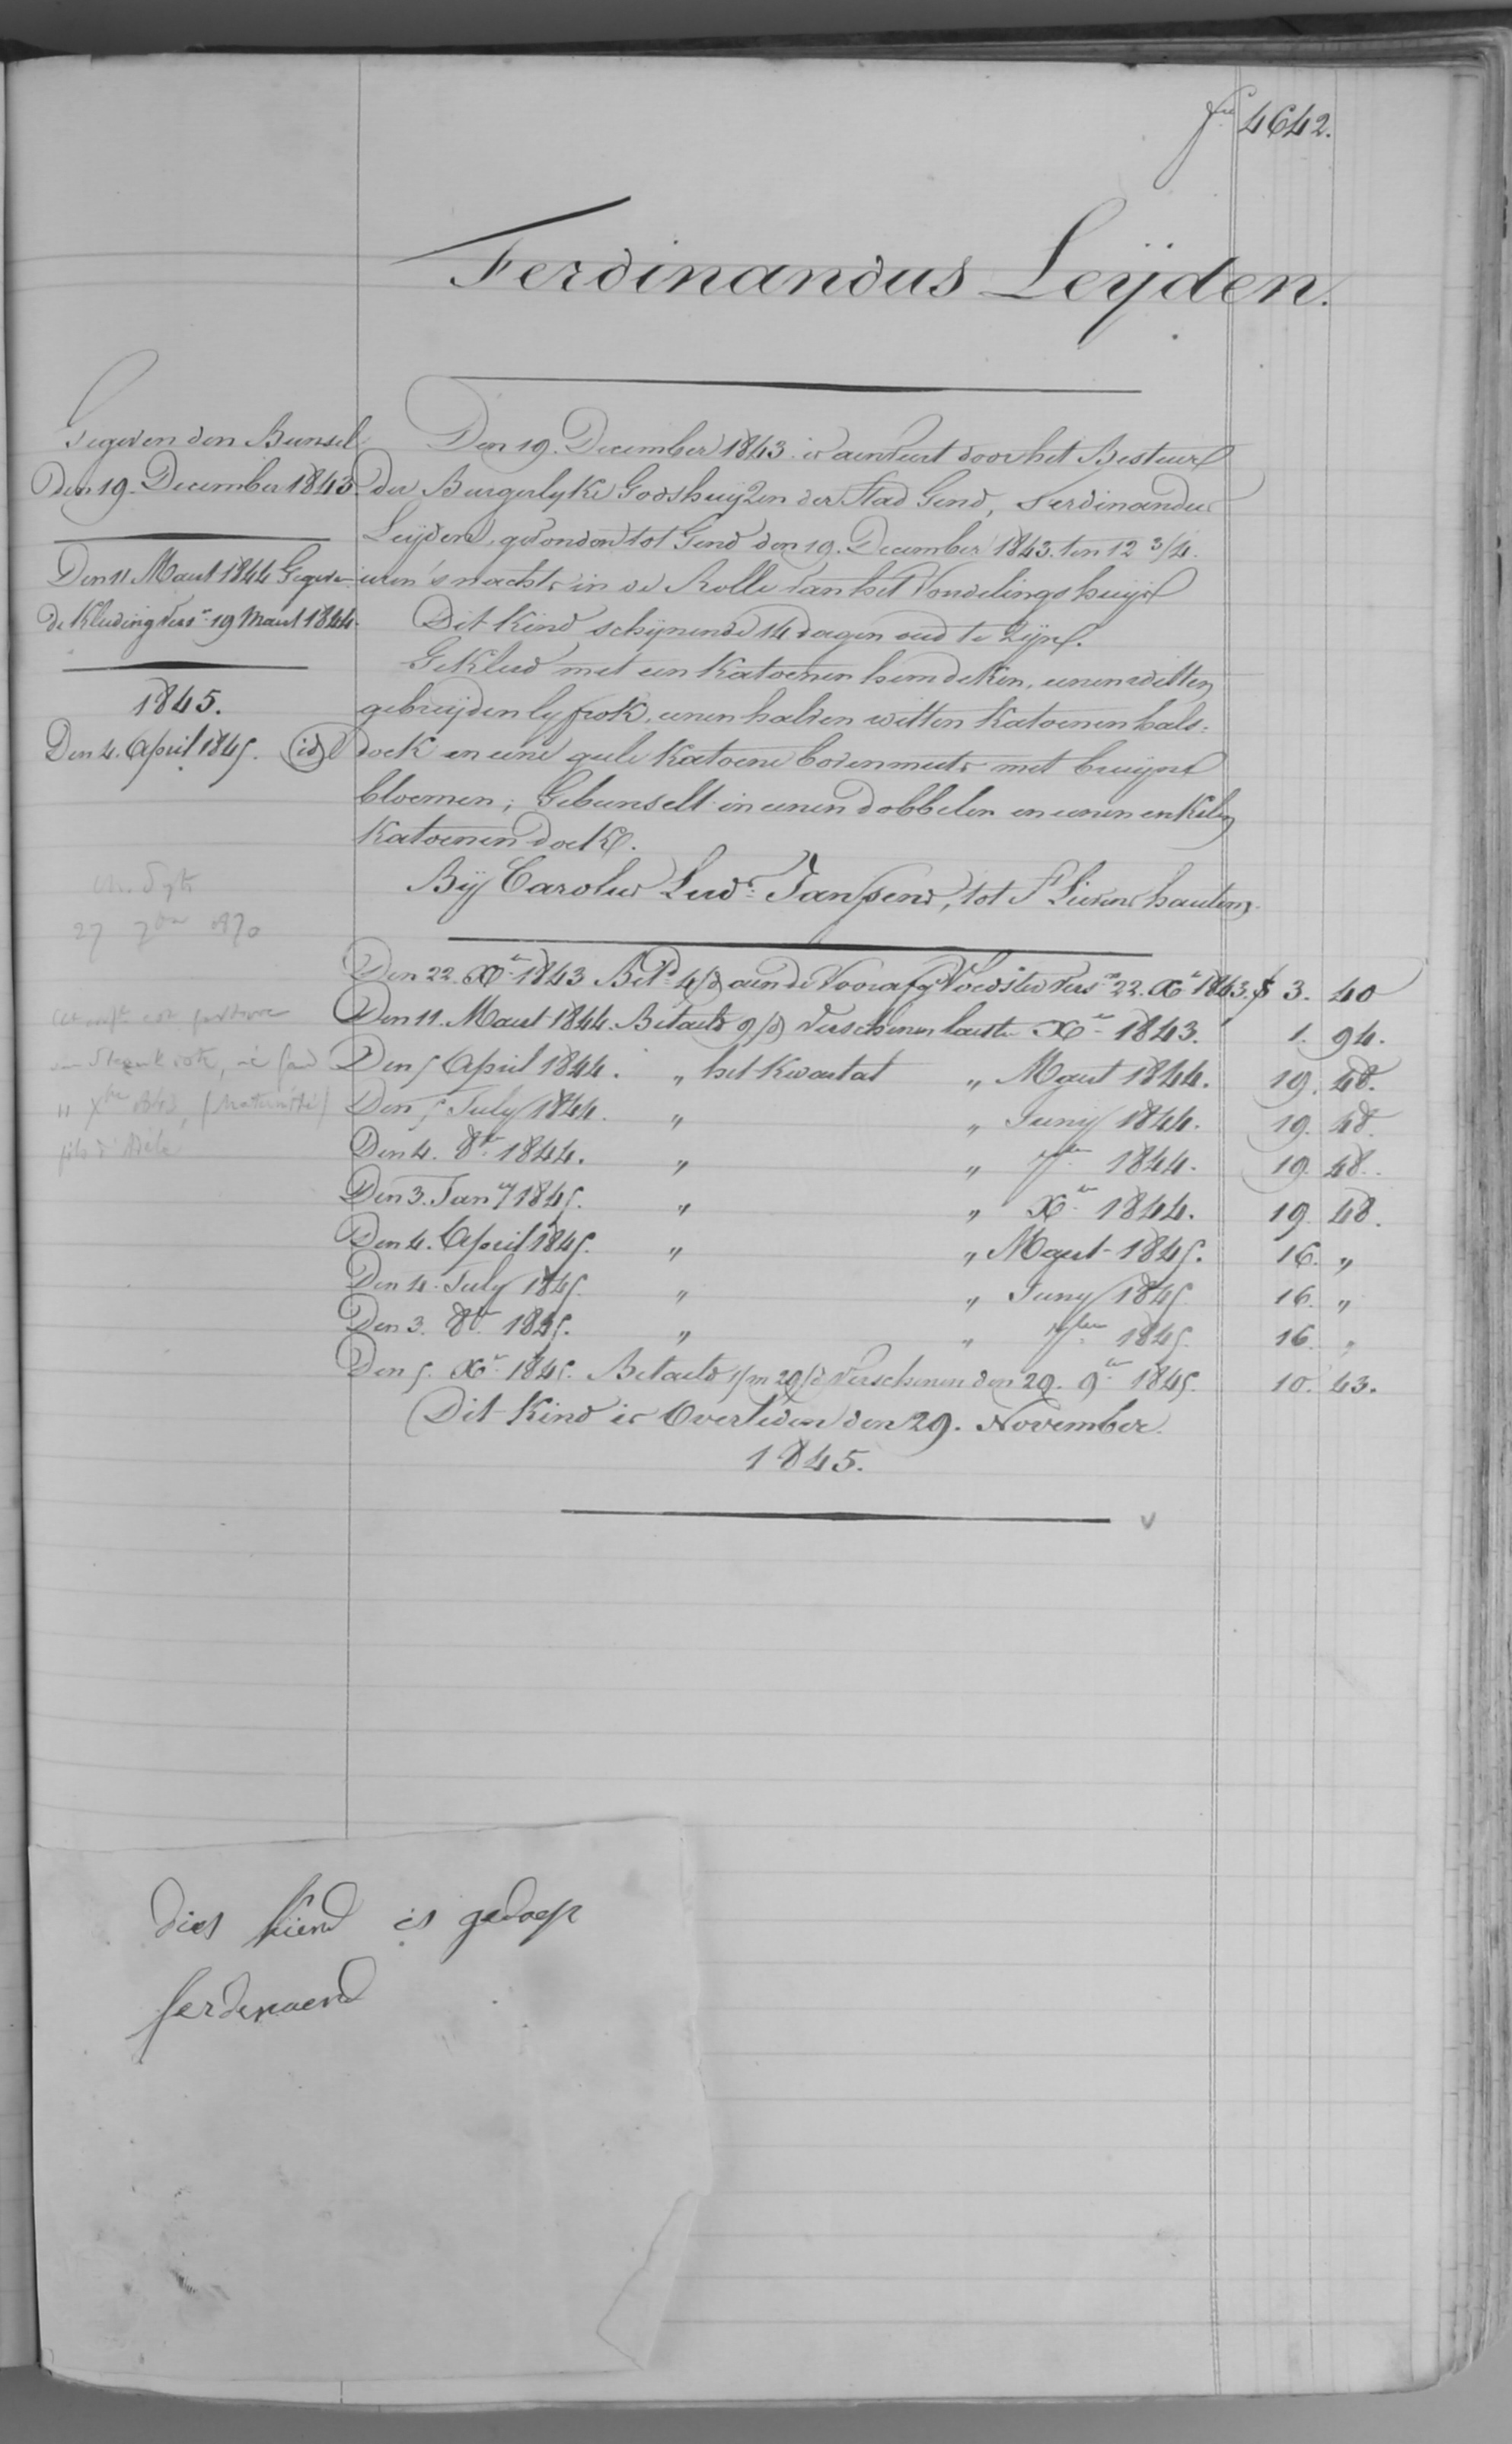 f<sup>io</sup> 4642.
Ferdinandus Leÿden.
Gegeven den Bunsel
Den 19. December 1843.
Den 11 Maart 1844 Gegeven
de Kleeding vers<sup>n</sup> 19 Maart 1844.
1845.
Den 4. April 1845. (id)
27 7bre 1870
11 Xbre 1843, (Maternité)
fils d'Adèle
Den 19. December 1843. is aenveert door het Bestuur
der Burgerlyke Godshuijzen der Stad Gend, Ferdinandus
Leijden, gevonden tot Gend den 19. December 1843. ten 12 3/4.
uren 's nachts in de Rolle van het Vondelingshuijs
Dit Kind schijnende 14 dagen oud te zijn.
Gekleed met een Katoenen hemdeken, eenen witten
gebreijden lyfrok, eenen halven witten Katoenen hals=
doek en eene geele Katoene bovenmuts met bruijne
bloemen; Gebunselt in eenen dobbelen en eenen enkelen
Katoenen doek.
Bÿ Carolus Lud: Janssens, tot S<sup>t</sup> Lievens hautem.
Den 22. X<sup>r</sup> 1843 Bet<sup>d</sup> 4/d aen de Voorafg Voedster vers<sup>n</sup> 22. X<sup>r</sup> 1843. 3. 40
Den 11. Maart 1844. Betaeld 9/d verschenen laeste X<sup>r</sup> 1843. 1. 94.
Den 5 April 1844. " het Kwartael " Maart 1844. 19. 48.
Den 5 July 1844. " " Juny 1844. 19. 48.
Den 4. 8<sup>r</sup> 1844. " " 7<sup>ber</sup> 1844. 19. 48.
Den 3. Jan<sup>y</sup> 1845. " " X<sup>r</sup> 1844. 19. 48.
Den 4. April 1845. " " Maart 1845. 16. "
Den 4. July 1845. " " Juny 1845 16. "
Den 3. 8<sup>r</sup> 1845. " " 7<sup>ber</sup> 1845. 16. "
Den 5. X<sup>r</sup> 1845. Betaeld 1/m 29/d verschenen den 29. 9<sup>r</sup> 1845. 10. 43.
Dit Kind is Overleden den 29. November
1845.
dies kiend is gedoep
ferdenaend